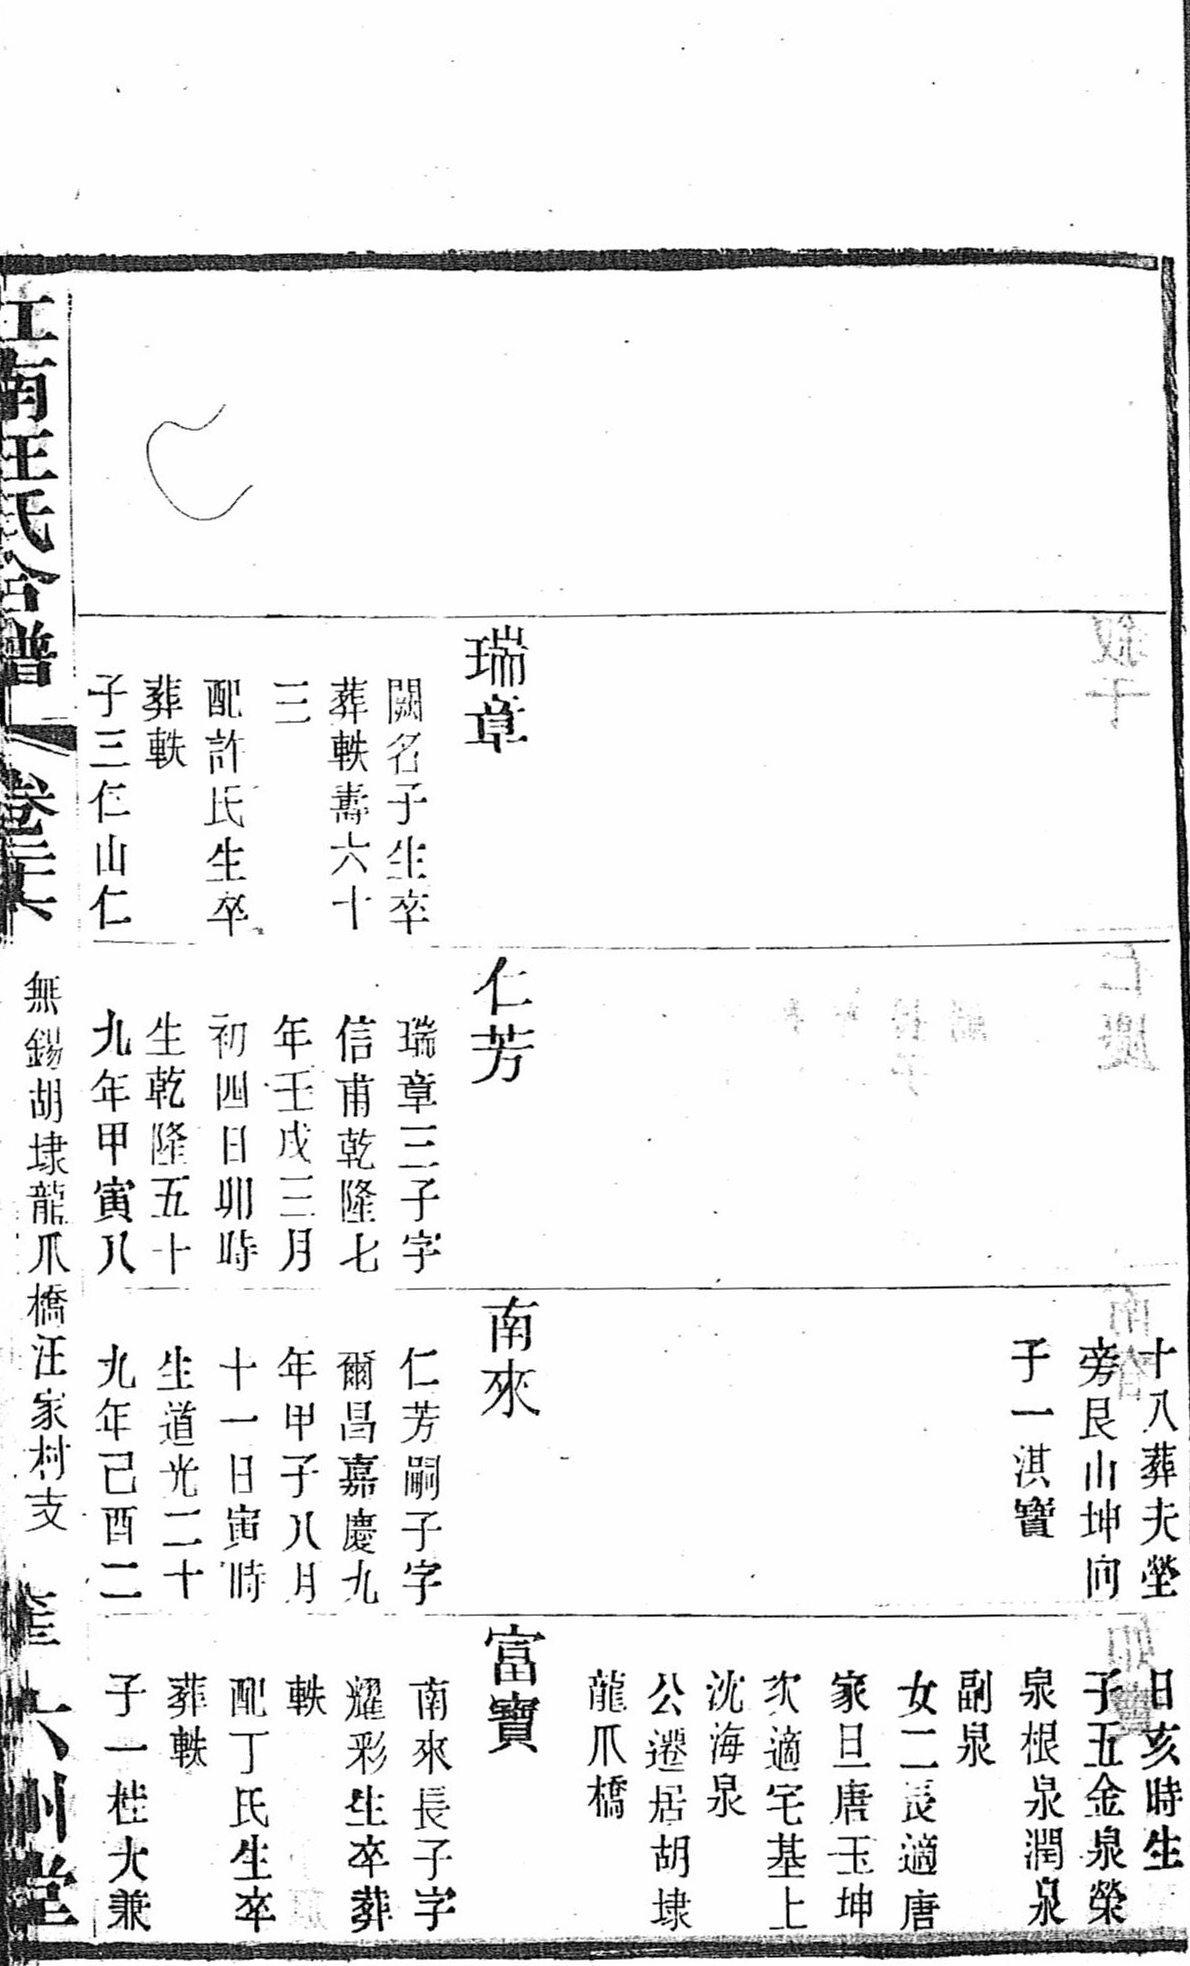 十八葬夫塋
旁艮山坤向
子一淇寶
日亥時生
子五金泉榮
泉根泉潤泉
副泉
女二長適唐
家旦唐玉坤
次適宅基上
沈海泉
公遷居胡埭
龍爪橋
瑞章
闕名子生卒
葬軼壽六十
三
配許氏生卒
葬軼
子三仁山仁
仁芳
瑞章三子字
信甫乾隆七
年壬戌三月
初四日卯時
生乾隆五十
九年甲寅八
南來
仁芳嗣子字
爾昌嘉慶九
年甲子八月
十一日寅時
生道光二十
九年己酉二
富寶
南來長子字
耀彩生卒葬
軼
配丁氏生卒
葬軼
子一桂大兼
江南汪氏合譜
卷二六
無錫胡埭龍爪橋汪家村支
六州堂